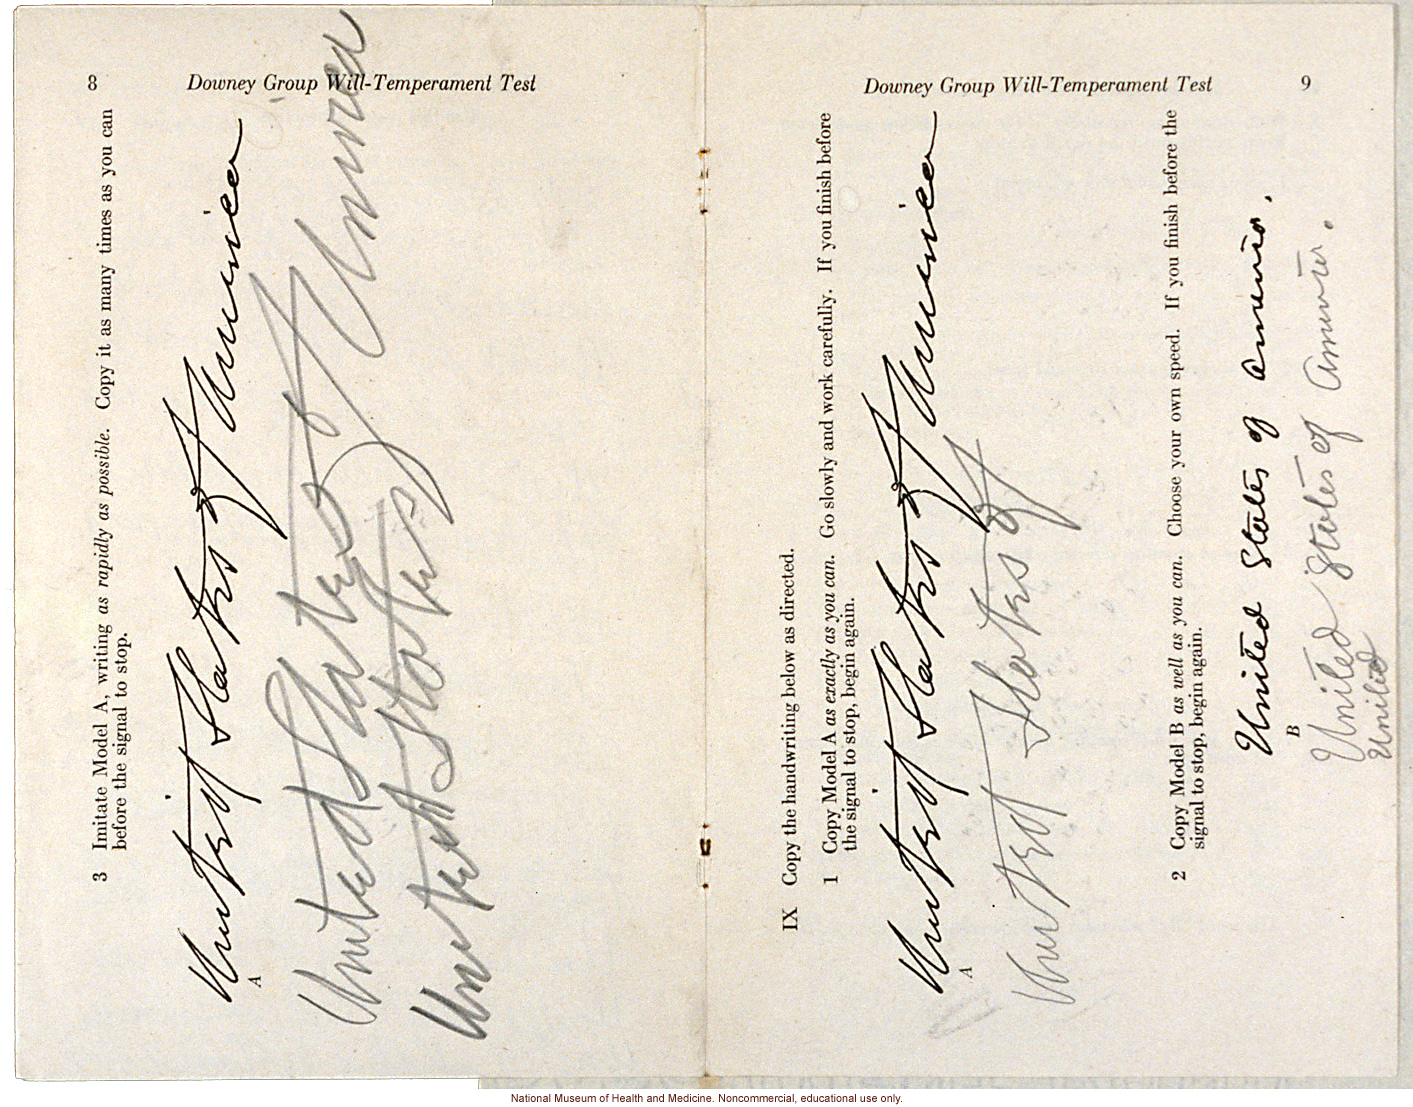 8 Downey Group Will-Temperament Test
3 Imitate Model A, writing as rapidly as possible. Copy it as many times as you can
before the signal to stop.
United States of America
A
United States of America
United States
Downey Group Will-Temperament Test 9
IX Copy the handwriting below as directed.
1 Copy Model A as exactly as you can. Go slowly and work carefully. If you finish before
the signal to stop, begin again.
United States of America
A
United States of
2 Copy Model B as well as you can. Choose your own speed. If you finish before the
signal to stop, begin again.
United States of America.
B
United States of America.
United
National Museum of Health and Medicine. Noncommercial, educational use only.